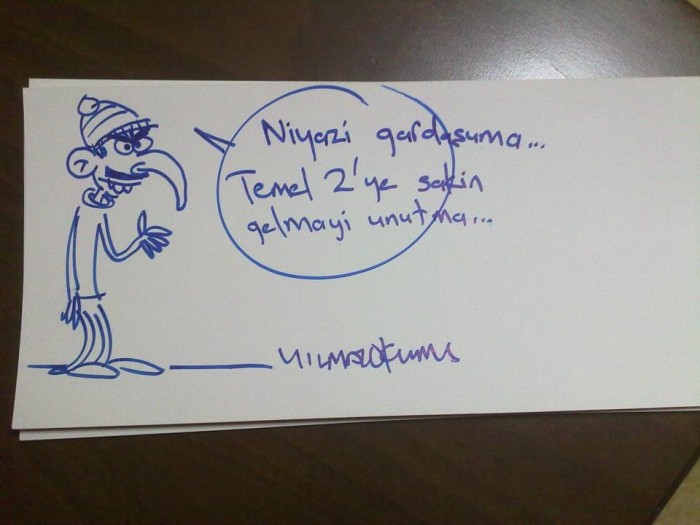 Niyazi gardaşuma...
Temel 2'ye sakin
gelmayi unutma...
YILMAZOKUMUŞ